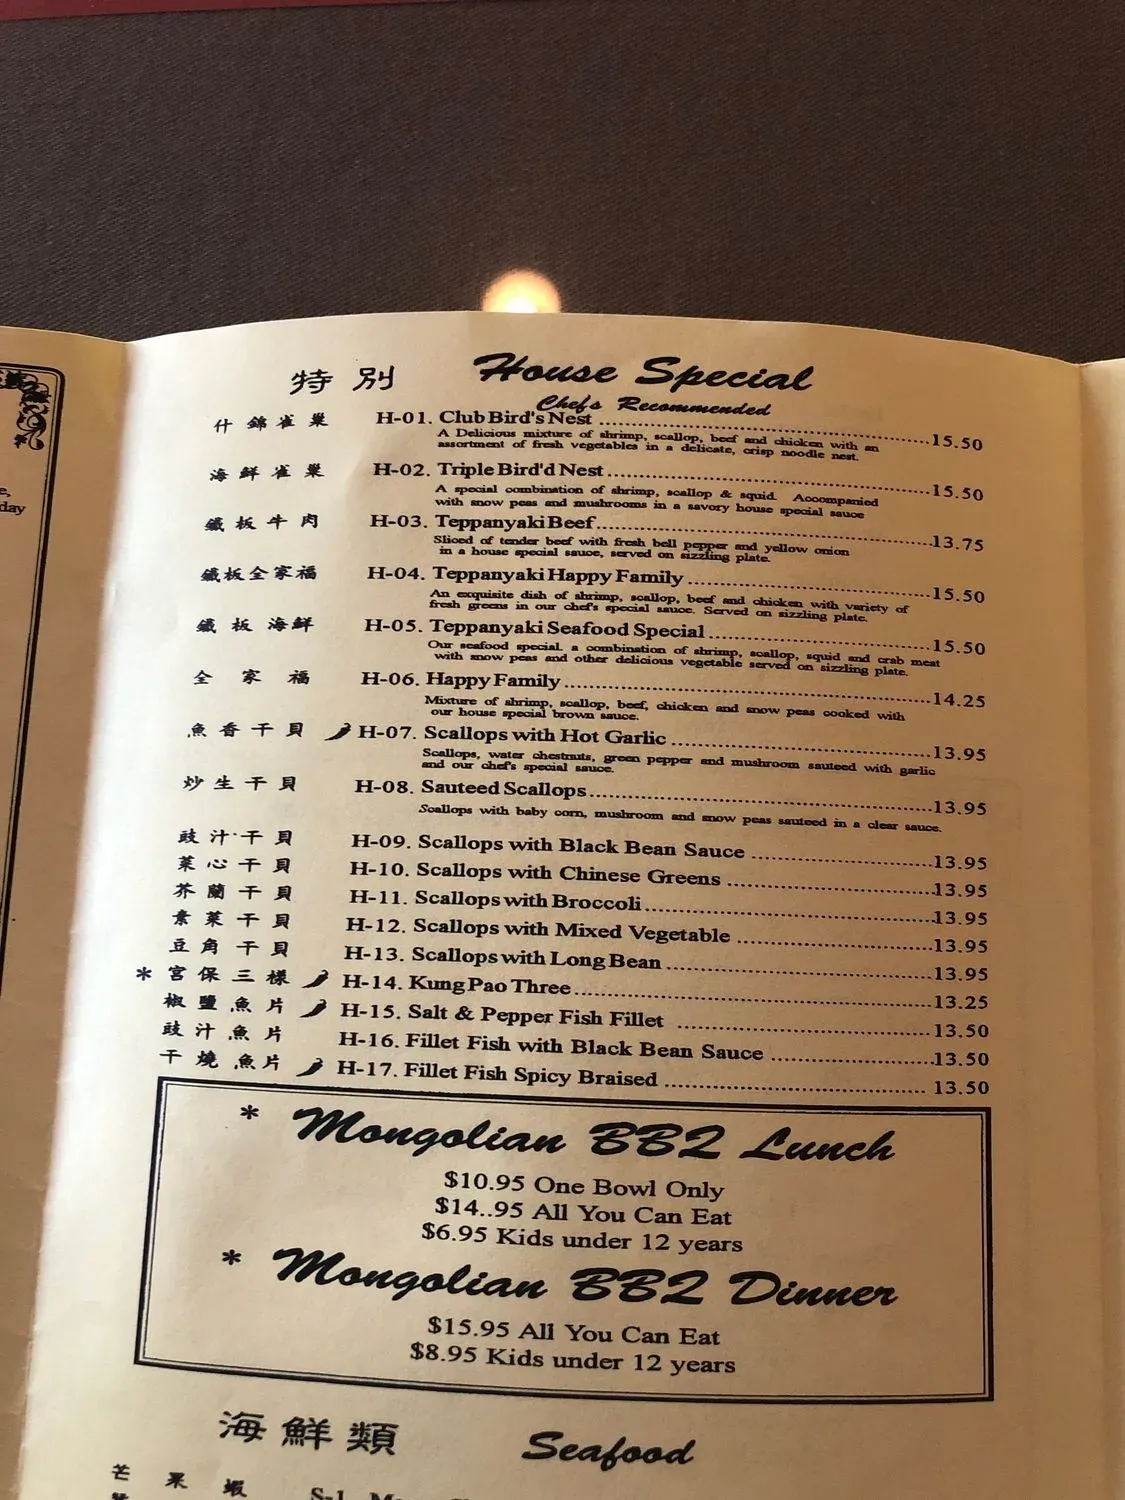 e,
day
特別 House Special
Chef's Recommended
什錦雀巢 H-01. Club Bird's Nest ........ 15.50
A Delicious mixture of shrimp, scallop, beef and chicken with an
assortment of fresh vegetables in a delicate, crisp noodle nest.
海鮮雀巢 H-02. Triple Bird'd Nest ........ 15.50
A special combination of shrimp, scallop & squid. Accompanied
with snow peas and mushrooms in a savory house special sauce
鐵板牛肉 H-03. Teppanyaki Beef ........ 13.75
Sliced of tender beef with fresh bell pepper and yellow onion
in a house special sauce, served on sizzling plate.
鐵板全家福 H-04. Teppanyaki Happy Family ........ 15.50
An exquisite dish of shrimp, scallop, beef and chicken with variety of
fresh greens in our chef's special sauce. Served on sizzling plate.
鐵板海鮮 H-05. Teppanyaki Seafood Special ........ 15.50
Our seafood special. a combination of shrimp, scallop, squid and crab meat
with snow peas and other delicious vegetable served on sizzling plate.
全家福 H-06. Happy Family ........ 14.25
Mixture of shrimp, scallop, beef, chicken and snow peas cooked with
our house special brown sauce.
魚香干貝 H-07. Scallops with Hot Garlic ........ 13.95
Scallops, water chestnuts, green pepper and mushroom sauteed with garlic
and our chef's special sauce.
炒生干貝 H-08. Sauteed Scallops ........ 13.95
Scallops with baby corn, mushroom and snow peas sauteed in a clear sauce.
豉汁干貝 H-09. Scallops with Black Bean Sauce ........ 13.95
菜心干貝 H-10. Scallops with Chinese Greens ........ 13.95
芥蘭干貝 H-11. Scallops with Broccoli ........ 13.95
素菜干貝 H-12. Scallops with Mixed Vegetable ........ 13.95
豆角干貝 H-13. Scallops with Long Bean ........ 13.95
* 宮保三樣 H-14. Kung Pao Three ........ 13.25
椒鹽魚片 H-15. Salt & Pepper Fish Fillet ........ 13.50
豉汁魚片 H-16. Fillet Fish with Black Bean Sauce ........ 13.50
干燒魚片 H-17. Fillet Fish Spicy Braised ........ 13.50
* Mongolian BBQ Lunch
$10.95 One Bowl Only
$14..95 All You Can Eat
$6.95 Kids under 12 years
* Mongolian BBQ Dinner
$15.95 All You Can Eat
$8.95 Kids under 12 years
海鮮類 Seafood
芒果蝦 S-1